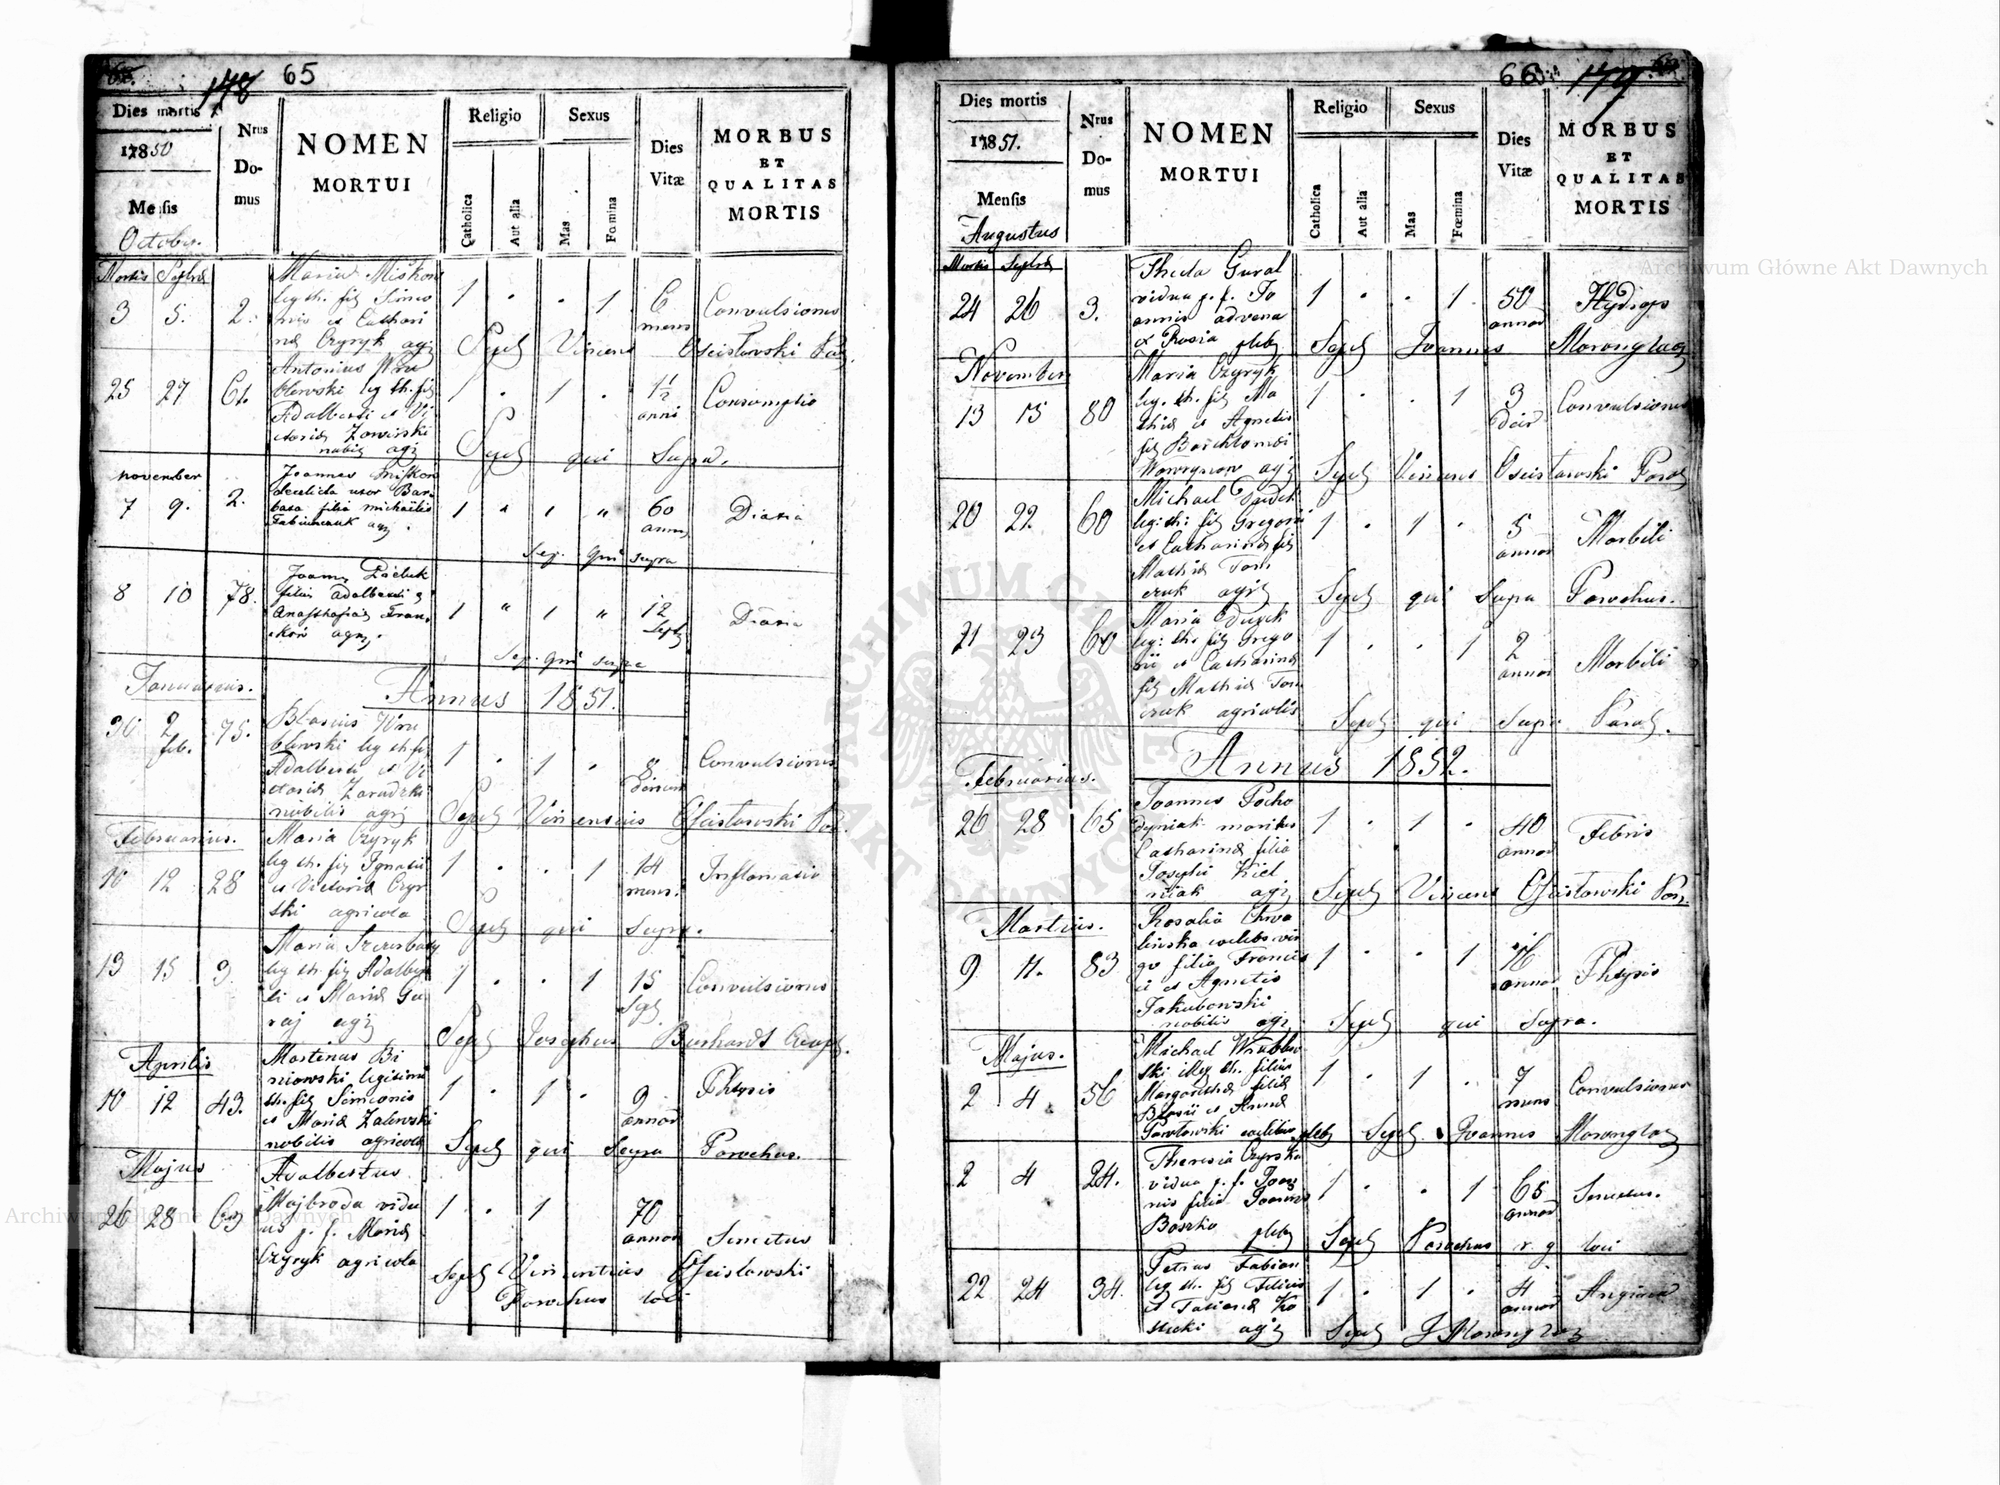 178 65
Dies mortis
1850
Mensis
October.
Nrus
Do-
mus
NOMEN
MORTUI
Religio
Catholica
Aut alia
Sexus
Mas
Fœmina
Dies
Vitæ
MORBUS
ET
QUALITAS
MORTIS
Mortis Sepltæ
3 5. 2.
Maria Miskow
leg. th. filj Simeo
nis et Cathari
næ Czyryk agj
1 . . 1 6
mens
Convulsiones
Sepelj Vincens Ościsłowski Par
25 27 61.
Antonius Wru
blewski leg th. filj
Adalberti et Vi
ctoriæ
nobilis agj
1 . 1 . 1½
anni
Consumptio
Sepelj qui Supra.
november
7 9. 2.
Joannes Miśkow
derelicta uxor Bar-
bara filia michaelis
agj.
1 " 1 " 60
annj
Diaria
Sep. qui supra
8 10 78.
Joannj
filius Adalberti &
Anasthasiæ Fran-
ków agrj.
1 " 1 " 12
Septj
Diaria
Sep. qui supra
Januarius.
Annus 1851.
30 2
feb. 75.
Blasius Wru
blewski leg th. fi
Adalberti et Vi
ctoriæ
nobilis agj
1 . 1 . 8
dierum
Convulsiones
Sepelj Vincensius Ościsłowski Par.
Februarius.
10 12 28
Maria Czyryk
leg th. filj Ignatii
et Victoriæ Czyr
ski agricola
1 . . 1 14
mens.
Inflamatio
Sepelj qui Supra.
13 15 3.
Maria Szczerbaty
leg th. filj Adalber
ti et Mariæ Gu
raj agj
1 . . 1 15
Sept
Convulsiones
Sepelj Josephus Burhardt
Aprilis
10 12 43.
Martinus Bi
niowski legitimi
th. filj Simeonis
et Mariæ Zalewski
nobilis agricolæ
1 . 1 . 9
annor
Phtysis
Sepelj qui Supra Parochus.
Majus
26 28 63
Adalbertus
Majbroda vidu
us p. f. Mariæ
Czyryk agricola
1 . 1 70
annor
Senectus
Sepelj Vincentius Ościsłowski
Parochus loci
66 179
Dies mortis
1851.
Mensis
Augustus
Nrus
Do-
mus
NOMEN
MORTUI
Religio
Catholica
Aut alia
Sexus
Mas
Fœmina
Dies
Vitæ
MORBUS
ET
QUALITAS
MORTIS
Mortis Sepltæ
24 26 3.
Thecla Gural
vidua p. f. Jo
annis advena
ex Rosia plebj
1 . . 1 50
annor
Hydrops
Sepelj Joannes
November
13 15 80
Maria Czyryk
leg. th. filj Ma
thiæ et Agnetis
filj Barthlomei
agj
1 . . 1 3
dier
Convulsiones
Sepelj Vincens Ościsłowski Paroh
20 22. 60
Michael Dudek
leg: th: filj Gregorii
et Catharinæ filj
Mathiæ Tom
czuk agj
1 . 1 . 5
annor
Morbili
Sepelj qui Supra Parochus.
21 23 60
Maria Dudek
leg: th. filj Grego
rii et Catharinæ
filj Mathiæ Tom
czuk agricolis
1 . . 1 2
annor
Morbili
Sepelj qui Supra Paroh.
Annus 1852.
Februarius.
26 28 65
Joannes Pocho
dyniak maritus
Catharinæ filia
Josephi Kiel
niak agj
1 . 1 . 40
annor
Febris
Sepelj Vincens Ościsłowski Par.
Martius.
9 11. 83
Rosalia Chwa
lińska cælebs vir
go filia Francis
ci et Agnetis
Jakubowski
nobilis agj
1 . . 1 16
annor
Phtysis
Sepelj qui supra.
Majus.
2 4 56
Michael Wrublew
ski illeg th. filius
Margarethæ filiæ
Blasii et Annæ
Pawłowski cælebis plebj
1 . 1 . 7
mens
Convulsiones
Sepelj Joannes
2 4 24.
Theresia Czyrska
vidua p. f. Joan
nis filia Joannis
Boszko plebj
1 . . 1 65
annor
Senectus.
Sepelj Parochus r. g loci
22 24 34.
Petrus Fabian
leg th. filj Felicis
et Tatianæ Ko
stecki agj
1 . 1 . 4
annor
Angina
Sepelj J
Archiwum Główne Akt Dawnych
Archiwum Główne Akt Dawnych
ARCHIWUM GŁÓWNE AKT DAWNYCH